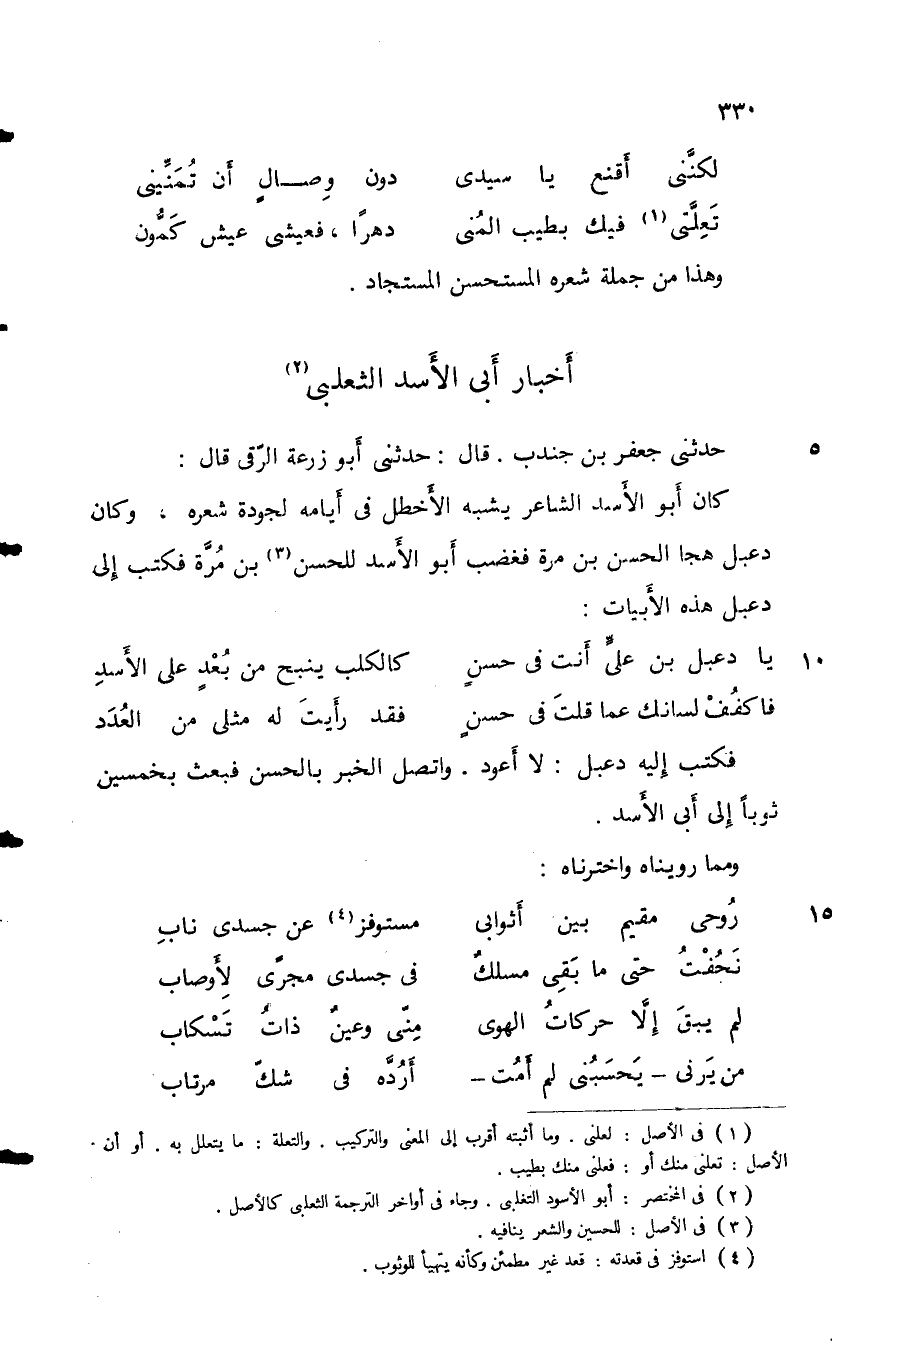 ٣٣٠
لكنَّنى أَقنع يا سيدى دون وِصــالٍ أَن تُمَنِّينى
تَعِلَّتى(١) فيك بطيب المُنى دهرًا ، فعيشى عيش كَمُّون
وهذا من جملة شعره المستحسن المستجاد .
أَخبار أَبى الأَسد الثعلبى(٢)
٥ حدثنى جعفر بن جندب . قال : حدثنى أَبو زرعة الرّقى قال :
كان أَبو الأَسد الشاعر يشبه الأَخطل فى أَيامه لجودة شعره ، وكان
دعبل هجا الحسن بن مرة فغضب أَبو الأَسد للحسن(٣) بن مُرَّة فكتب إلى
دعبل هذه الأَبيات :
١٠ يا دعبل بن علىٍّ أَنت فى حسنٍ كالكلب ينبح من بُعْدٍ على الأَسدِ
فاكفُفْ لسانك عما قلتَ فى حسنٍ فقد رأَيتَ له مثلى من العُدَد
فكتب إليه دعبل : لا أَعود . واتصل الخبر بالحسن فبعث بخمسين
ثوباً إلى أَبى الأَسد .
ومما رويناه واخترناه :
١٥ رُوحى مقيم بين أَثوابى مستوفز(٤) عن جسدى نابِ
نَحُفْتُ حتى ما بَقى مسلكٌ فى جسدى مجرًى لِأَوصاب
لم يبقَ إلَّا حركاتُ الهوى مِنّى وعينٌ ذاتُ تَسْكاب
من يَرنى – يَحسَبُنى لم أَمُت – أَرُدَّه فى شكّ مرتاب
(١) فى الأصل : لعلنى . وما أثبته أقرب إلى المعنى والتركيب . والتعلة : ما يتعلل به . أو أن
الأصل : تعلى منك أو : فعلى منك بطيب .
(٢) فى المختصر : أبو الأسود التغلبى . وجاء فى أواخر الترجمة الثعلبى كالأصل .
(٣) فى الأصل : للحسين والشعر ينافيه .
(٤) استوفز فى قعدته : قعد غير مطمئن وكأنه يتهيأ للوثوب .